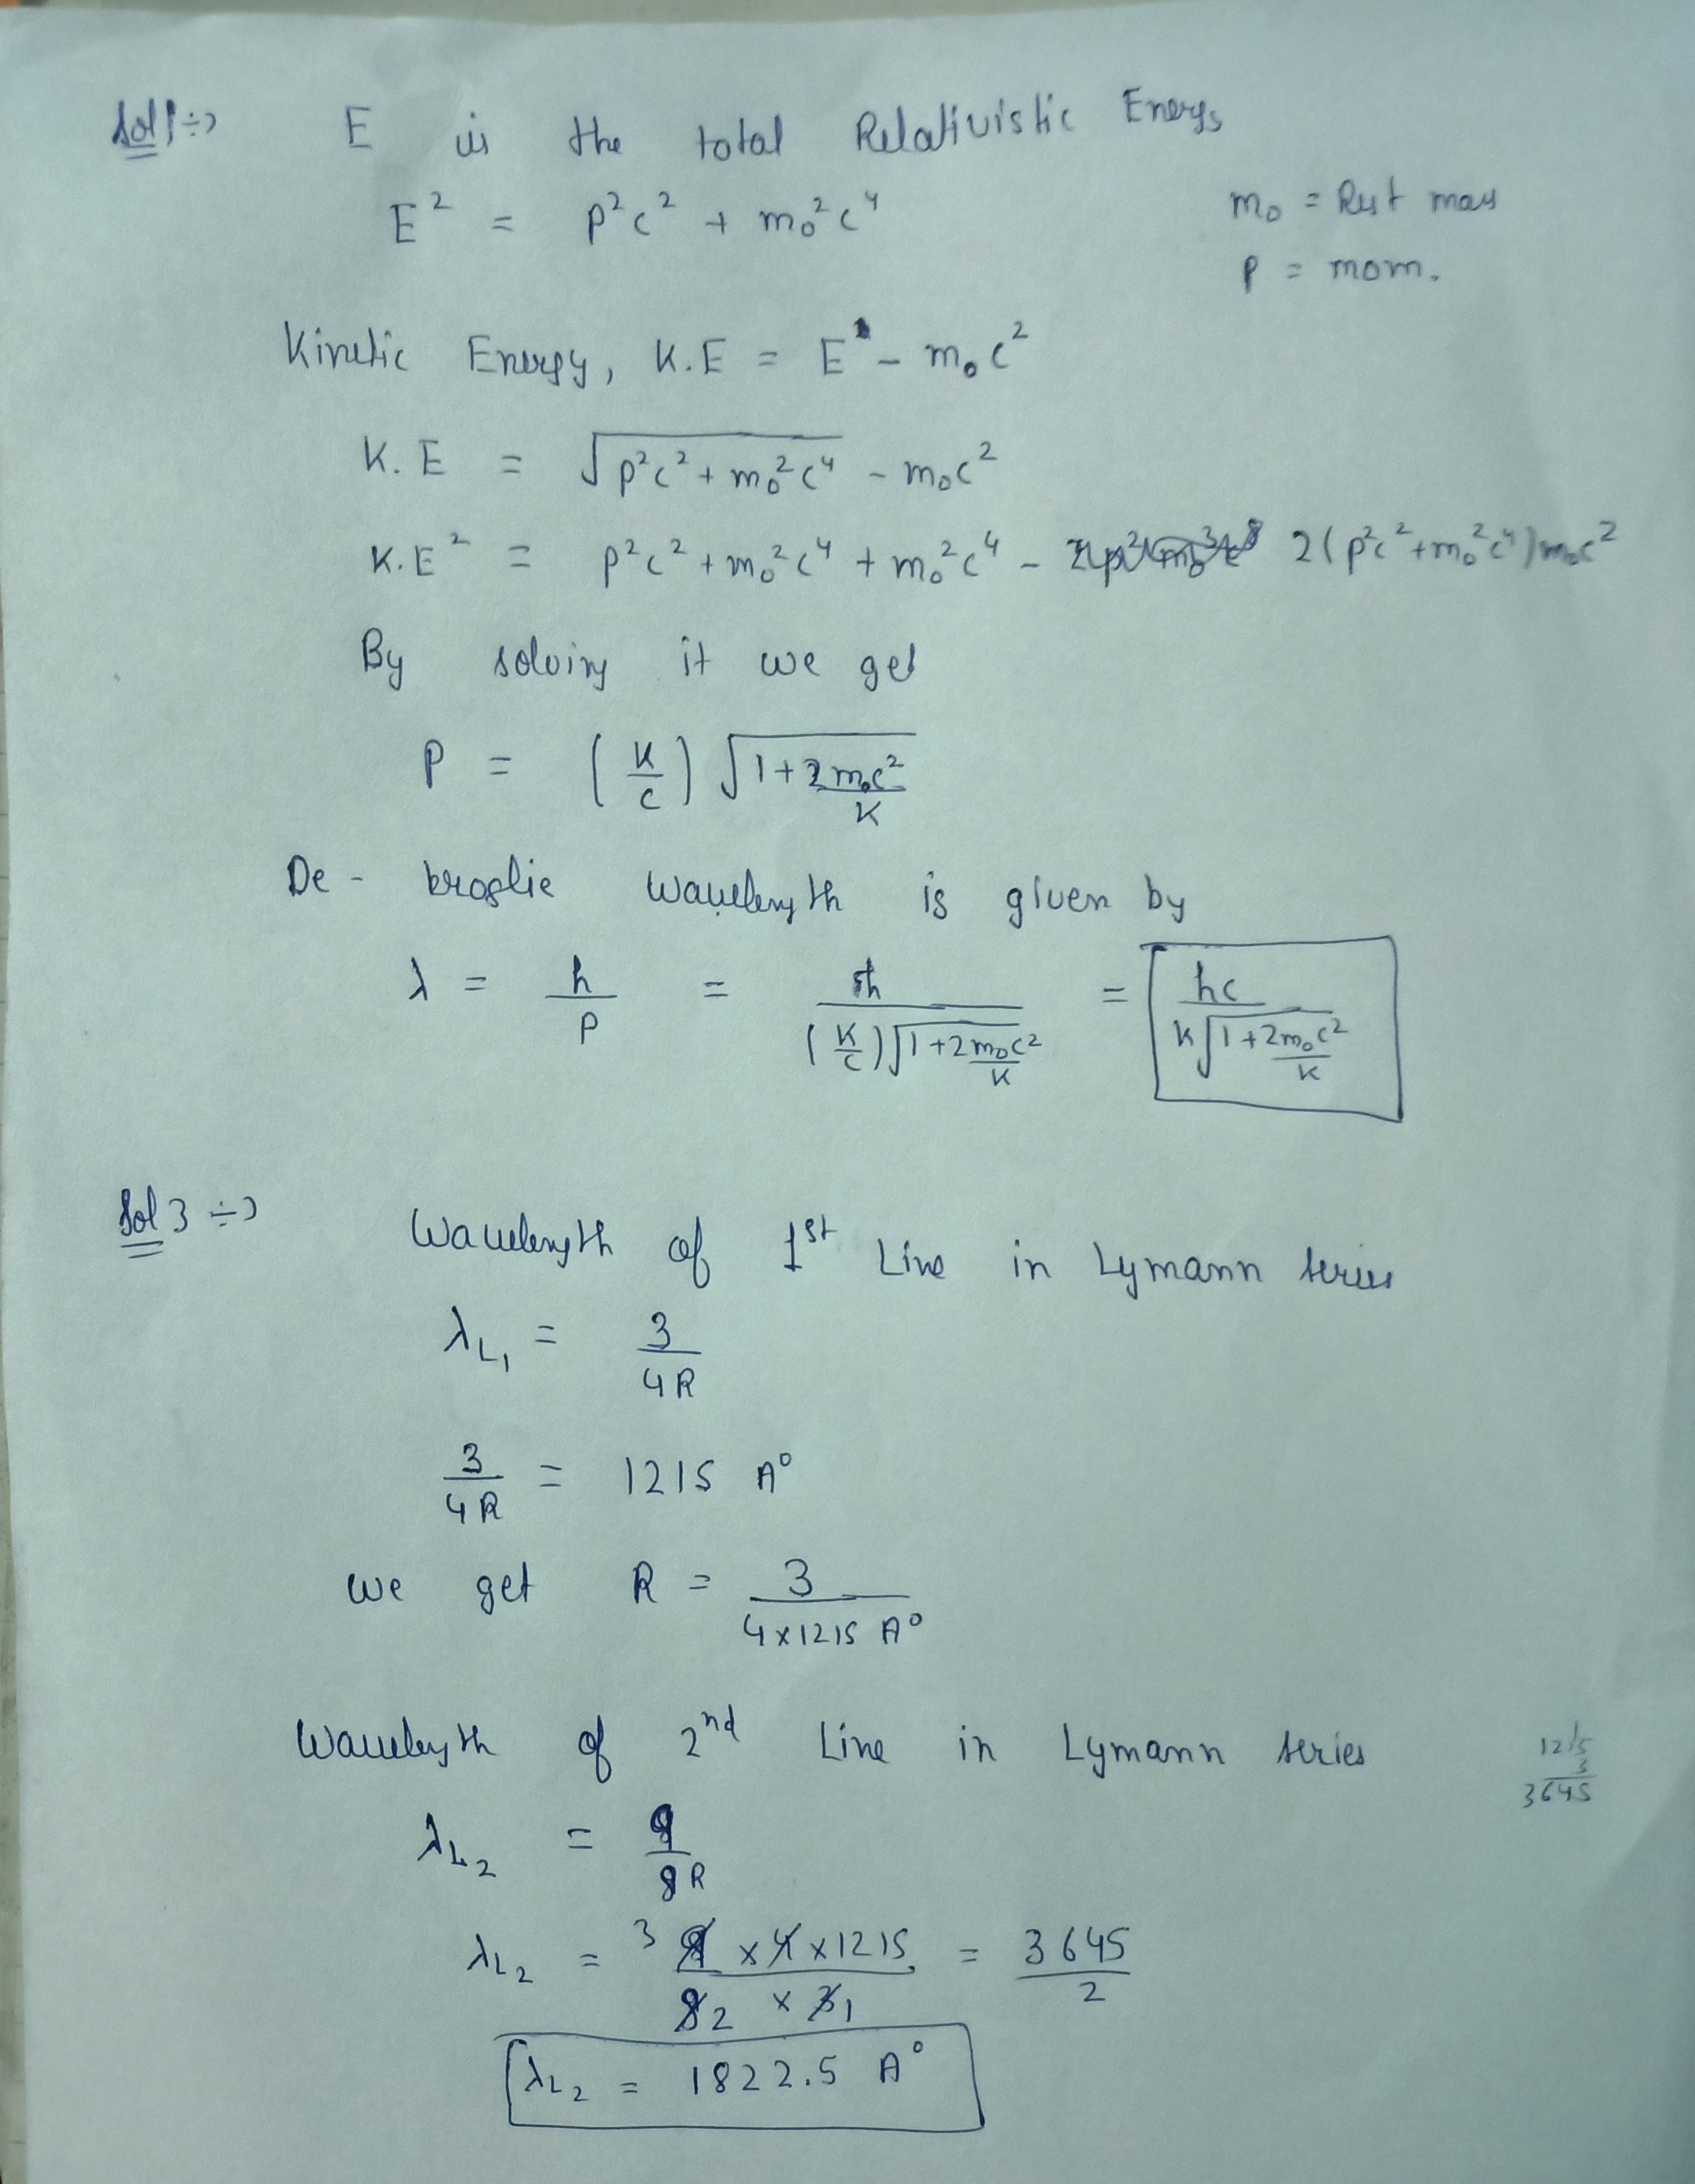 Sol 1 ÷> E is the total Relativistic Energy
E² = p²c² + m₀²c⁴
m₀ = Rest mass
P = mom.
Kinetic Energy, K.E = E - m₀c²
K.E = √(p²c² + m₀²c⁴) - m₀c²
K.E² = p²c² + m₀²c⁴ + m₀²c⁴ - 2(p²c² + m₀²c⁴)m₀c²
By solving it we get
P = (K/c) √(1 + 2m₀c²/K)
De - broglie wavelength is given by
λ = h/P = h/((K/c)√(1 + 2m₀c²/K)) = hc/(K√(1 + 2m₀c²/K))
Sol 3 ÷> Wavelength of 1st Line in Lymann series
λL₁ = 3/4R
3/4R = 1215 A°
we get R = 3/(4×1215 A°)
Wavelength of 2nd Line in Lymann series
1215
3
3645
λL₂ = 9/8R
λL₂ = 3 9 × 4 × 1215 / 8 2 × 3 1 = 3645/2
λL₂ = 1822.5 A°